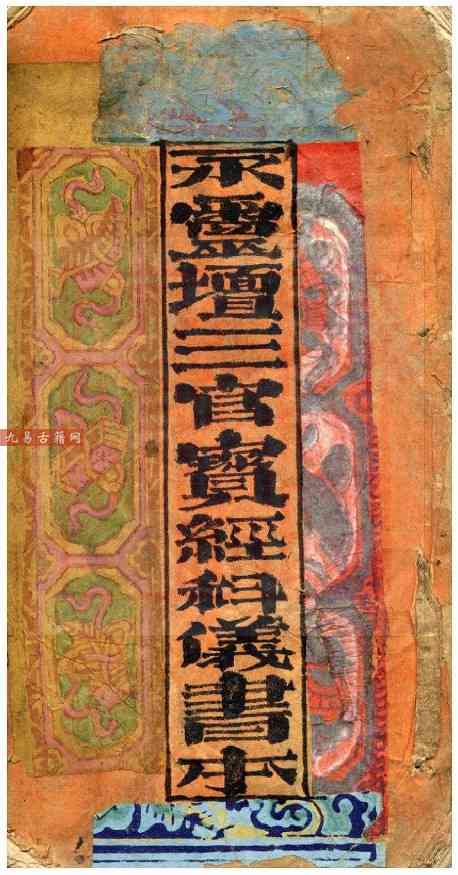 永靈壇三官寳經科儀書本
九易古籍网